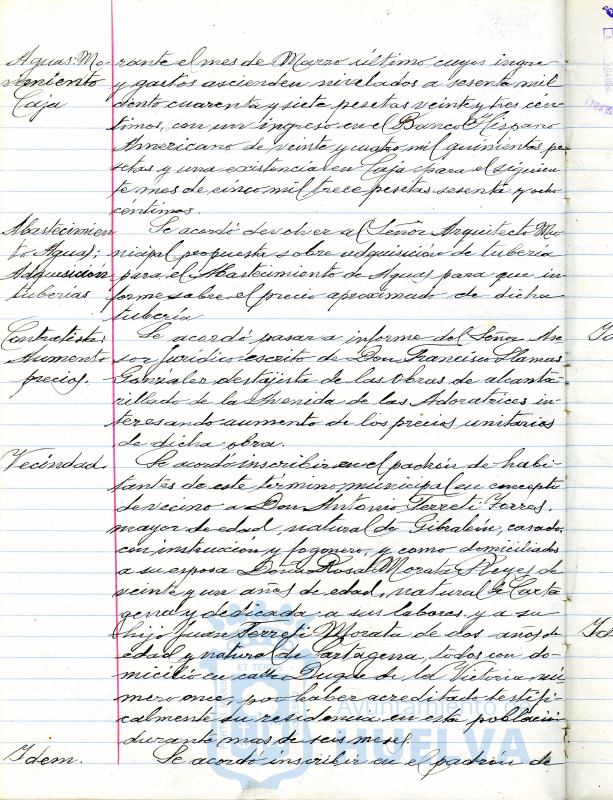 Aguas: Mo-
vimiento
Caja
rante el mes de Marzo último, cuyos ingre-
y gastos ascienden nivelados a sesenta mil
ciento cuarenta y siete pesetas veinte y tres cén-
timos, con un ingreso en el Banco Hispano
Americano de veinte y cuatro mil quinientas pe-
setas y una existencia en Caja para el siguien-
te mes de cinco mil trece pesetas sesenta y ocho
céntimos.
Abastecimien
to Aguas:
Adquisicion
tuberias
Se acordó devolver al Señor Arquitecto Mu-
nicipal propuesta sobre adquisición de tubería
para el Abastecimiento de Aguas para que in-
forme sobre el precio aproximado de dicha
tubería
Contratistas
Aumento
precios.
Se acordó pasar a informe del Señor Ase-
sor jurídico escrito de Don Francisco Llamas
González destajista de las obras de alcanta-
rillado de la Avenida de las Adoratrices in-
teresando aumento de los precios unitarios
de dicha obra.
Vecindad.
Se acordó inscribir en el padrón de habi-
tantes de este término municipal en concepto
de vecino a Don Antonio Ferreti Ferres,
mayor de edad, natural de Gibraleón, casado,
con instrucción y fogonero, y como domiciliados
a su esposa Doña Rosa Morata Reyes de
veinte y un años de edad, natural de Carta-
gena y dedicada a sus labores y a su
hijo Juan Ferreti Morata de dos años de
edad y natural de Cartagena, todos con do-
micilio en calle Duque de la Victoria nú-
mero once, por haber acreditado testifi-
calmente su residencia en esta población
durante mas de seis meses.
Idem.
Se acordó inscribir en el padrón de
Ayuntamiento de
HUELVA